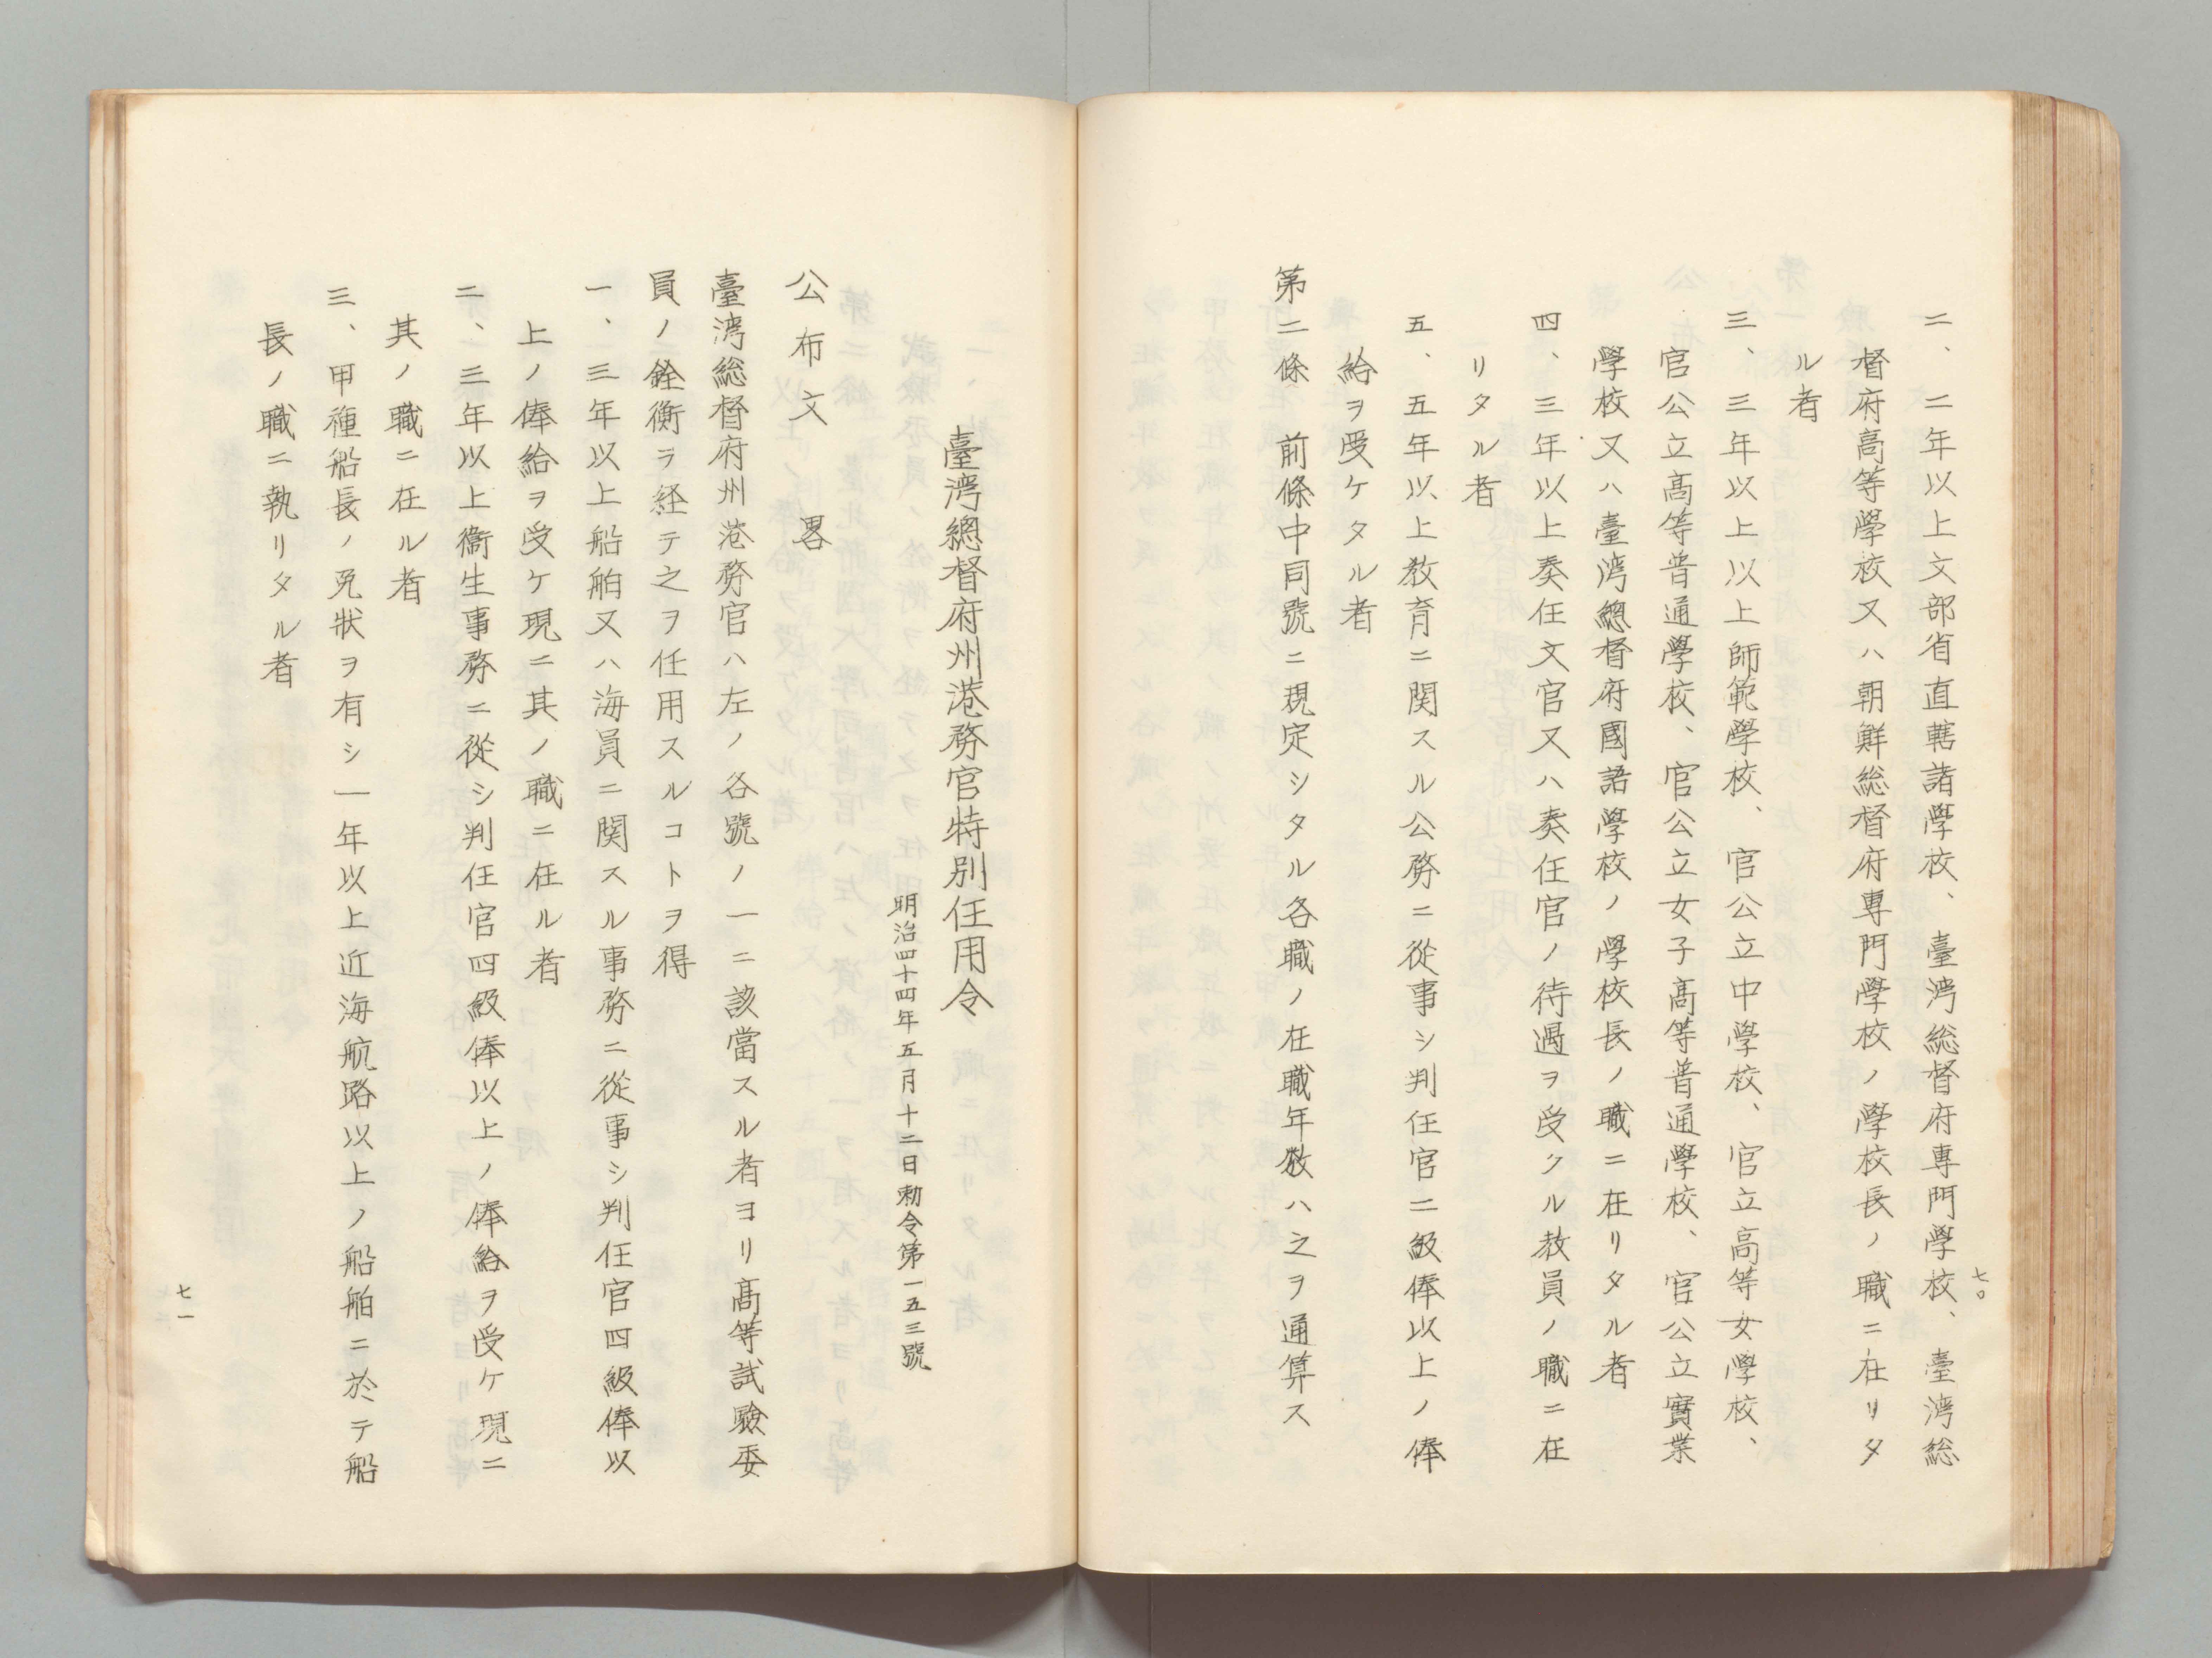 七〇
二、二年以上文部省直轄諸學校、臺湾総督府專門學校、臺湾総
督府高等學校又ハ朝鮮総督府專門學校ノ學校長ノ職ニ在リタ
ル者
三、三年以上以上師範學校、官公立中學校、官立高等女學校、
官公立高等普通學校、官公立女子高等普通學校、官公立實業
學校又ハ臺湾總督府國語學校ノ學校長ノ職ニ在リタル者
四、三年以上奏任文官又ハ奏任官ノ待遇ヲ受クル教員ノ職ニ在
リタル者
五、五年以上教育ニ関スル公務ニ從事シ判任官二級俸以上ノ俸
給ヲ受ケタル者
第二條　前條中同號ニ規定シタル各職ノ在職年数ハ之ヲ通算ス
臺湾總督府州港務官特別任用令
明治四十四年五月十二日勅令第一五三號
公布文　畧
臺湾総督府州港務官ハ左ノ各號ノ一ニ該當スル者ヨリ高等試驗委
員ノ銓衡ヲ経テ之ヲ任用スルコトヲ得
一、三年以上船舶又ハ海員ニ関スル事務ニ從事シ判任官四級俸以
上ノ俸給ヲ受ケ現ニ其ノ職ニ在ル者
二、三年以上衞生事務ニ從シ判任官四級俸以上ノ俸給ヲ受ケ現ニ
其ノ職ニ在ル者
三、甲種船長ノ免狀ヲ有シ一年以上近海航路以上ノ船舶ニ於テ船
長ノ職ニ執リタル者
七一